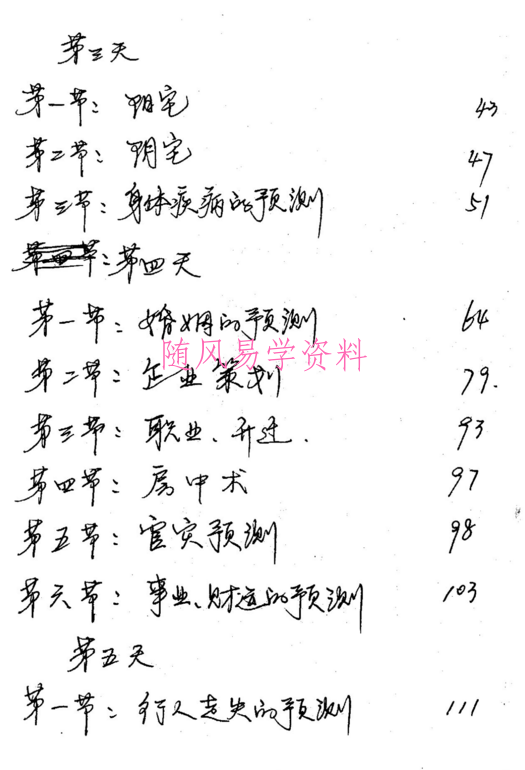 第三天
第一节：阳宅 43
第二节：阴宅 47
第三节：身体疾病的预测 51
第四节：第四天
第一节：婚姻的预测 64
随风易学资料
第二节：企业策划 79.
第三节：职业、升迁. 93
第四节：房中术 97
第五节：官灾预测 98
第六节：事业、财运的预测 103
第五天
第一节：行人走失的预测 111